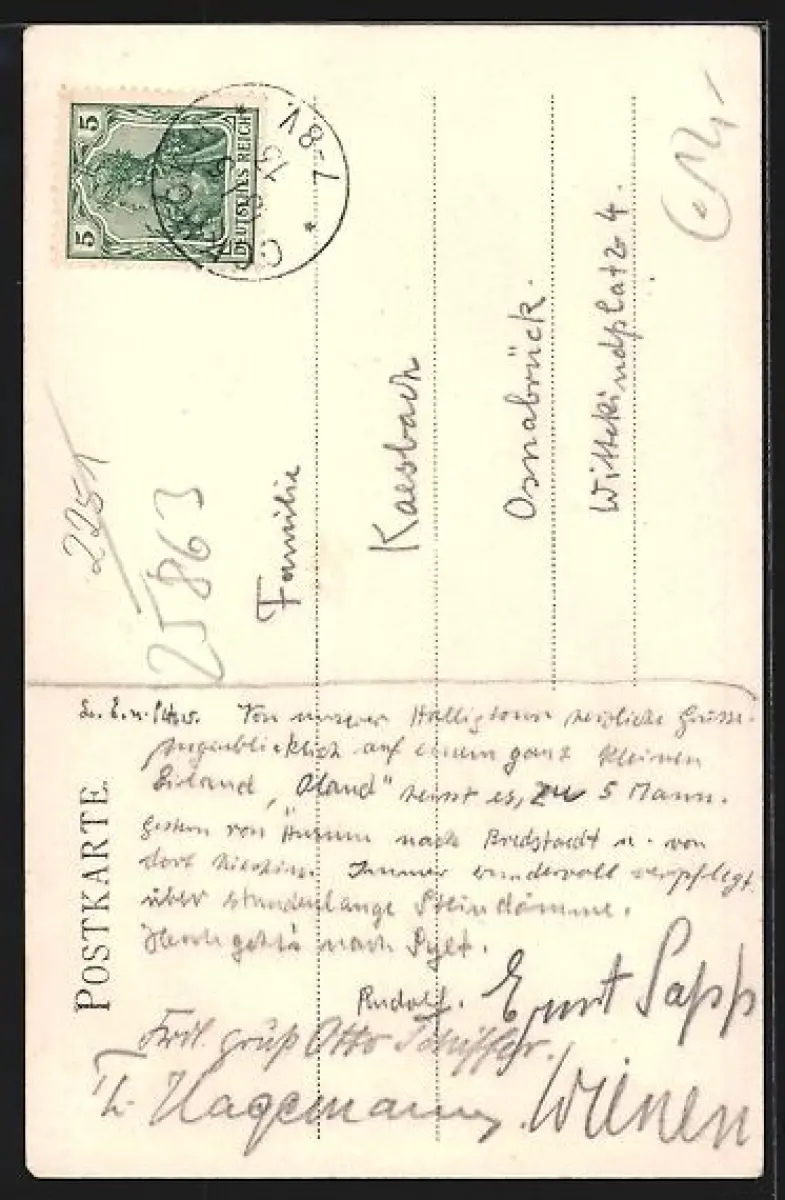 5 5
DEUTSCHES REICH
7-8 V.
2251
25863
Familie
Kaesbach
Osnabrück.
Wittekindplatz 4.
POSTKARTE.
Von unserer Halligtour herzliche Grüsse.
Augenblicklich auf einem ganz kleinen
Eiland, "Oland" heisst es, zu 5 Mann.
Gestern von Husum nach Bredstaedt u. von
dort hierhin. Immer wundervoll verpflegt
über stundenlange Steindämme.
nach Sylt.
Rudolf. Ernst Sapp
Frdl. Gruß Otto Schiffer.
Th. Hagemann. Wienen